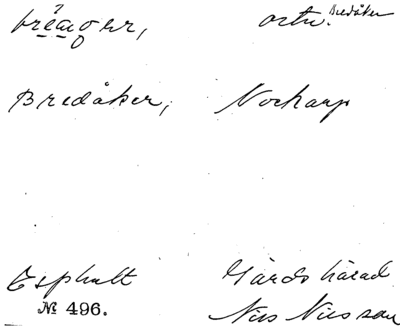 ortn. Bredåker
Bredåker, Norhanp
Esphult Gärds härad
№ 496. Nils Nilsson